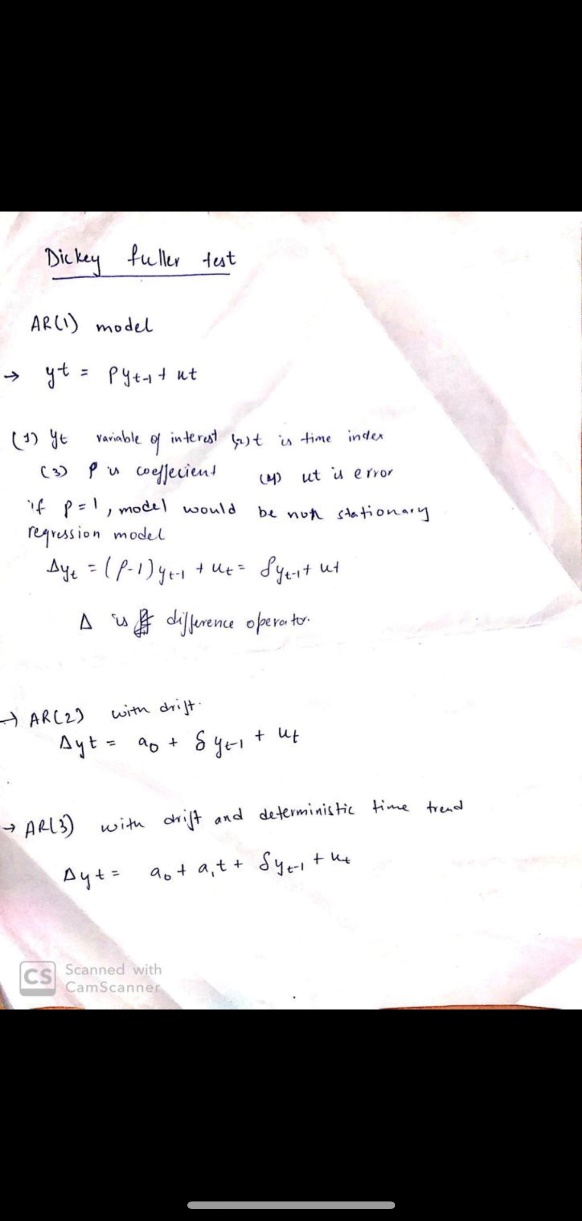 Dickey fuller test
AR(1) model
→ yt = ρyt-1 + ut
(1) yt variable of interest (2) t is time index
(3) ρ is coeffecient (4) ut is error
if ρ=1, model would be non stationary
regression model
Δyt = (ρ-1)yt-1 + ut = δyt-1 + ut
Δ is difference operator.
→ AR(2) with drift.
Δyt = a0 + δyt-1 + ut
→ AR(3) with drift and deterministic time trend
Δyt = a0 + a1t + δyt-1 + ut
CS Scanned with
CamScanner